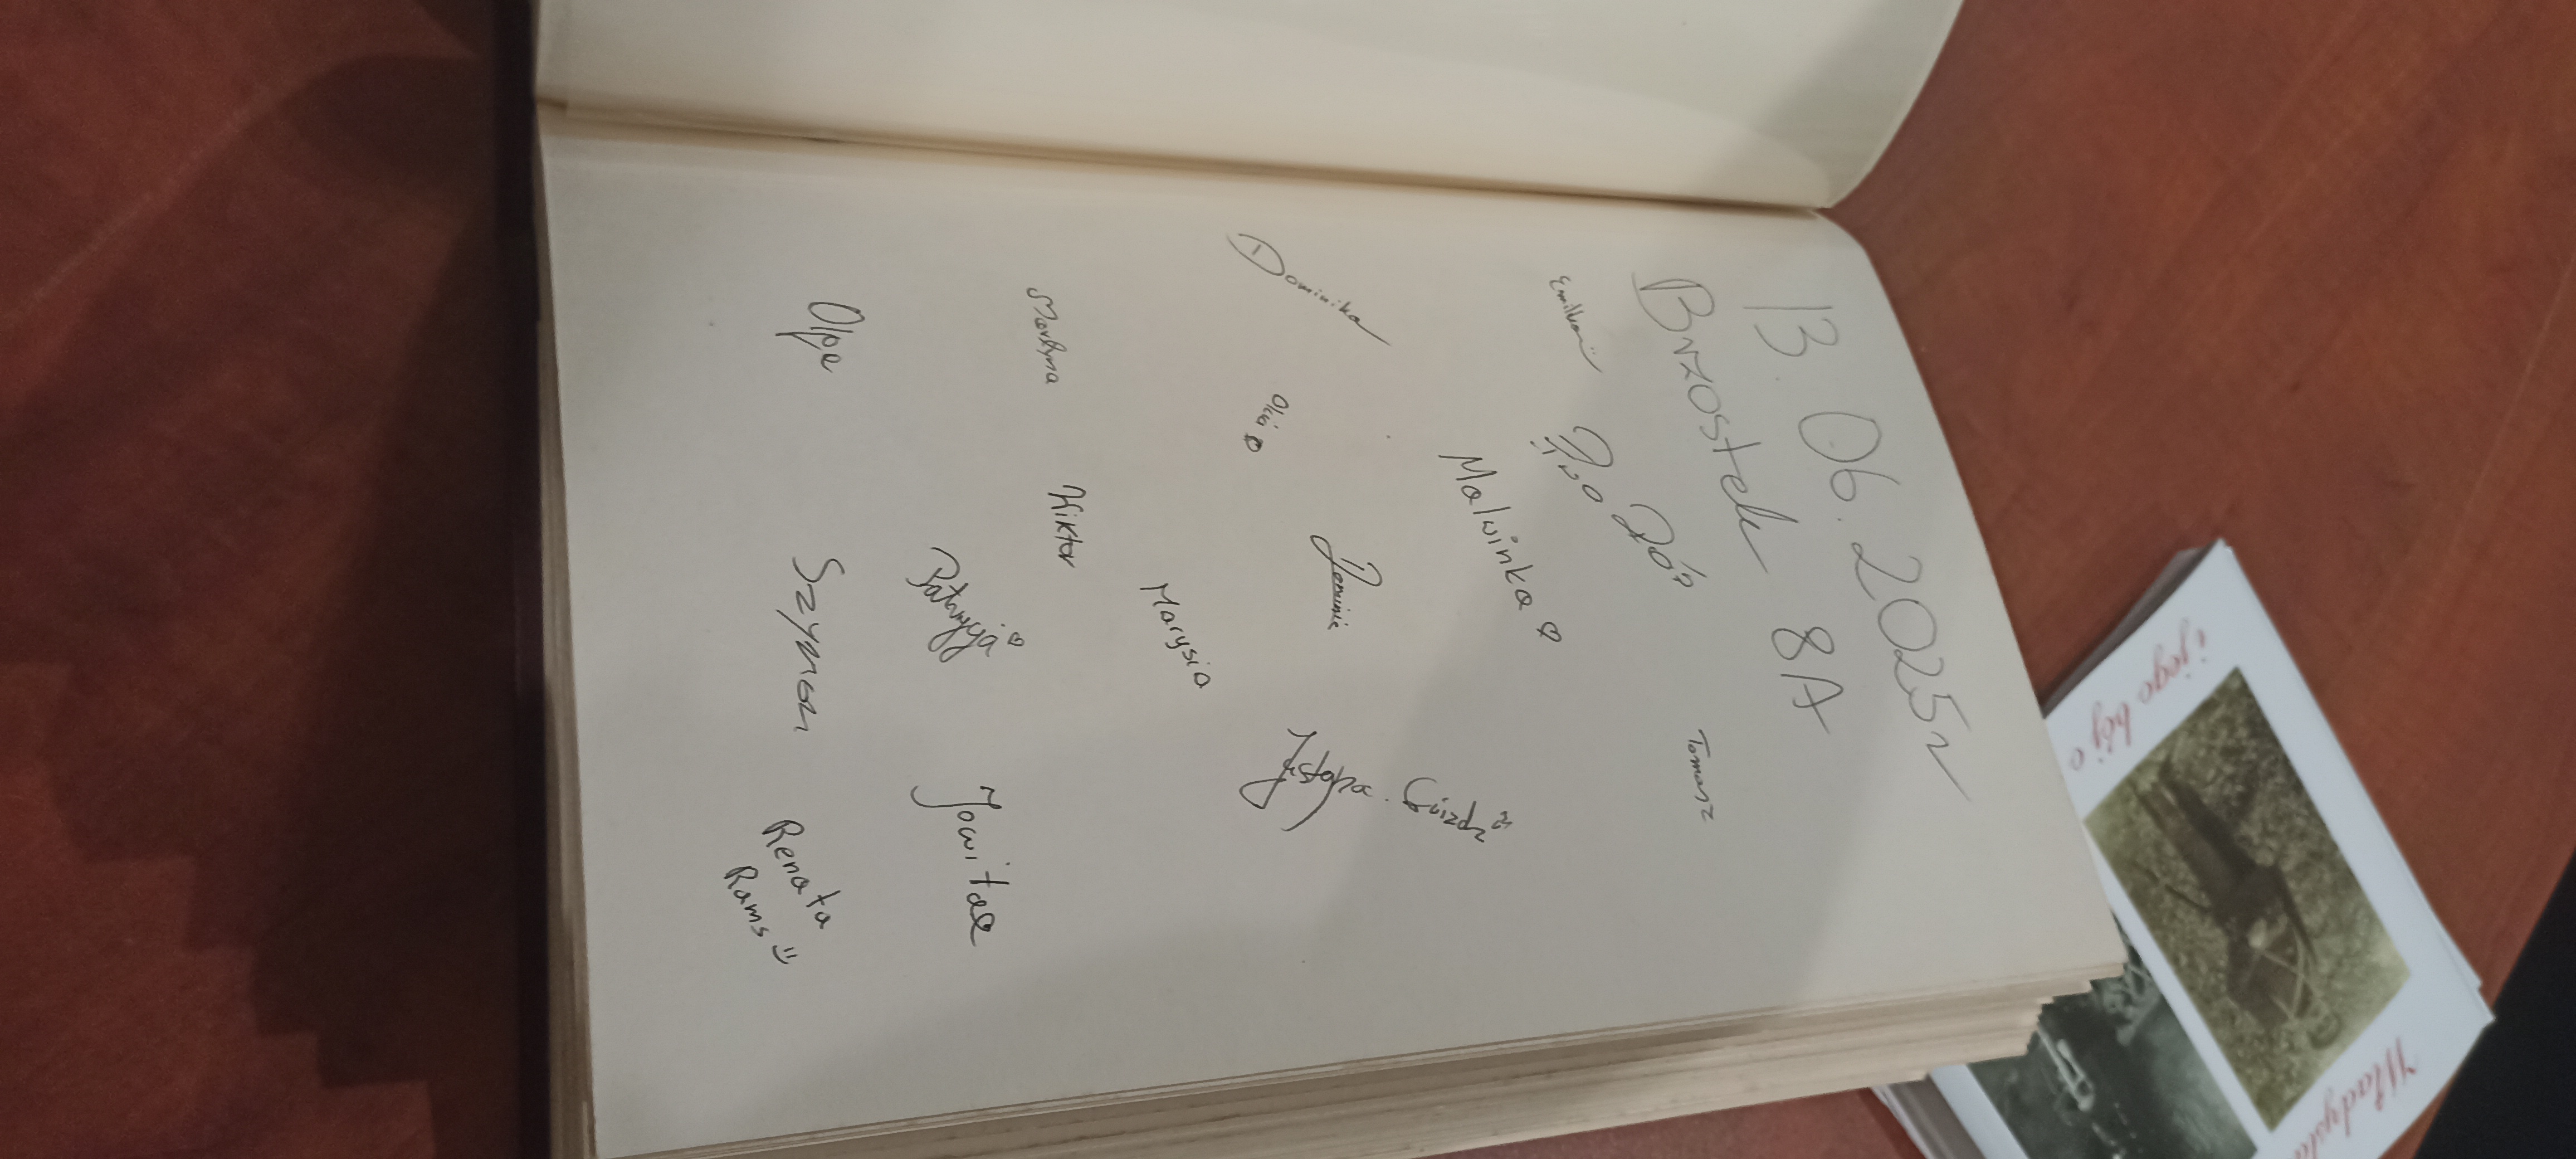 13.06.2025r
Brzostek 8A
Emilka
Tomasz
Malwinka
Dominika
Ola
Dominik
Justyna Gwizdz
Marysia
Martyna
Wiktor
Patrycja
Jowita
Olga
Szymon
Renata
Rams :)
i jego bój o
Władysła